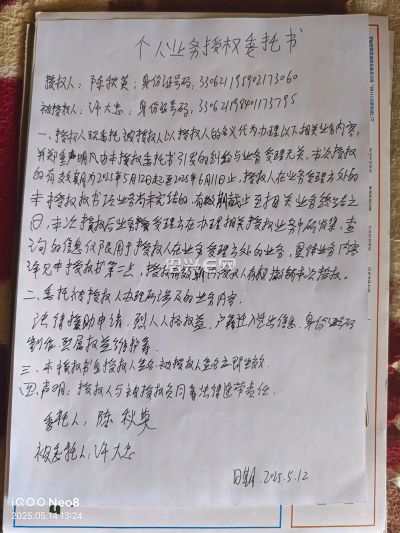 个人业务授权委托书
授权人：陈秋英，身份证号码，330621195902173060
被授权人：许大忠，身份证号码，330621198401173795
一、授权人现委托被授权人以授权人的名义代为办理以下相关业务内容，
并郑重声明凡由本授权委托书引发的纠纷与业务受理方无关。本次授权
的有效期为2025年5月12日起至2026年6月11日止，授权人在业务受理方处的
本授权书项业务为未完结的，有效期截止至相关业务终结之
日，本次授权后业务受理方在办理相关授权业务中收集、查
询的信息仅限用于授权人在业务受理方处的业务，具体业务内容
详见本授权书第二点，授权有效期内授权人有权撤销本次授权。
二、委托被授权人办理所涉及的业务内容。
法律援助申请，烈人人格权益，户籍迁入迁出信息，身份证号码
制作，烈属权益维护等
三、本授权书自授权人签名、被授权人签名立即生效。
四、声明：授权人与被授权负同等法律连带责任。
委托人：陈秋英
被委托人：许大忠
日期，2025.5.12
绍兴E网
iQOO Neo8
2025.05.14 13:24